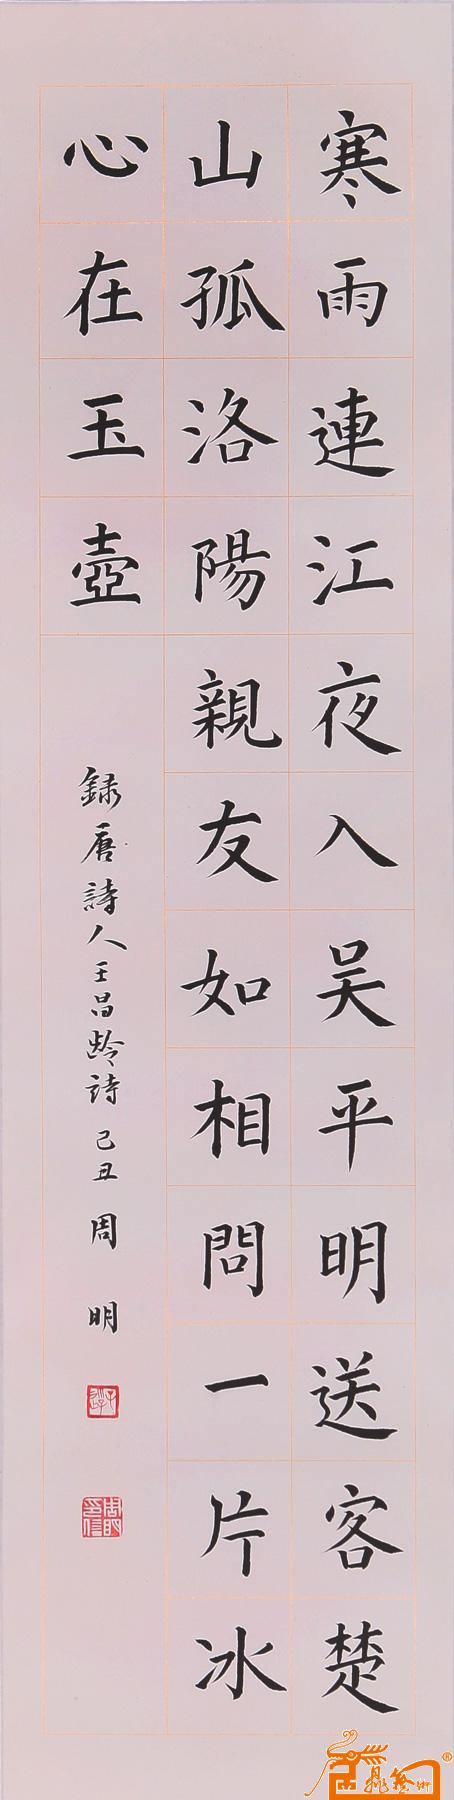 寒雨連江夜入吴平明送客楚
山孤洛陽親友如相問一片冰
心在玉壺
録唐詩人王昌齡詩 己丑 周明
周明印信